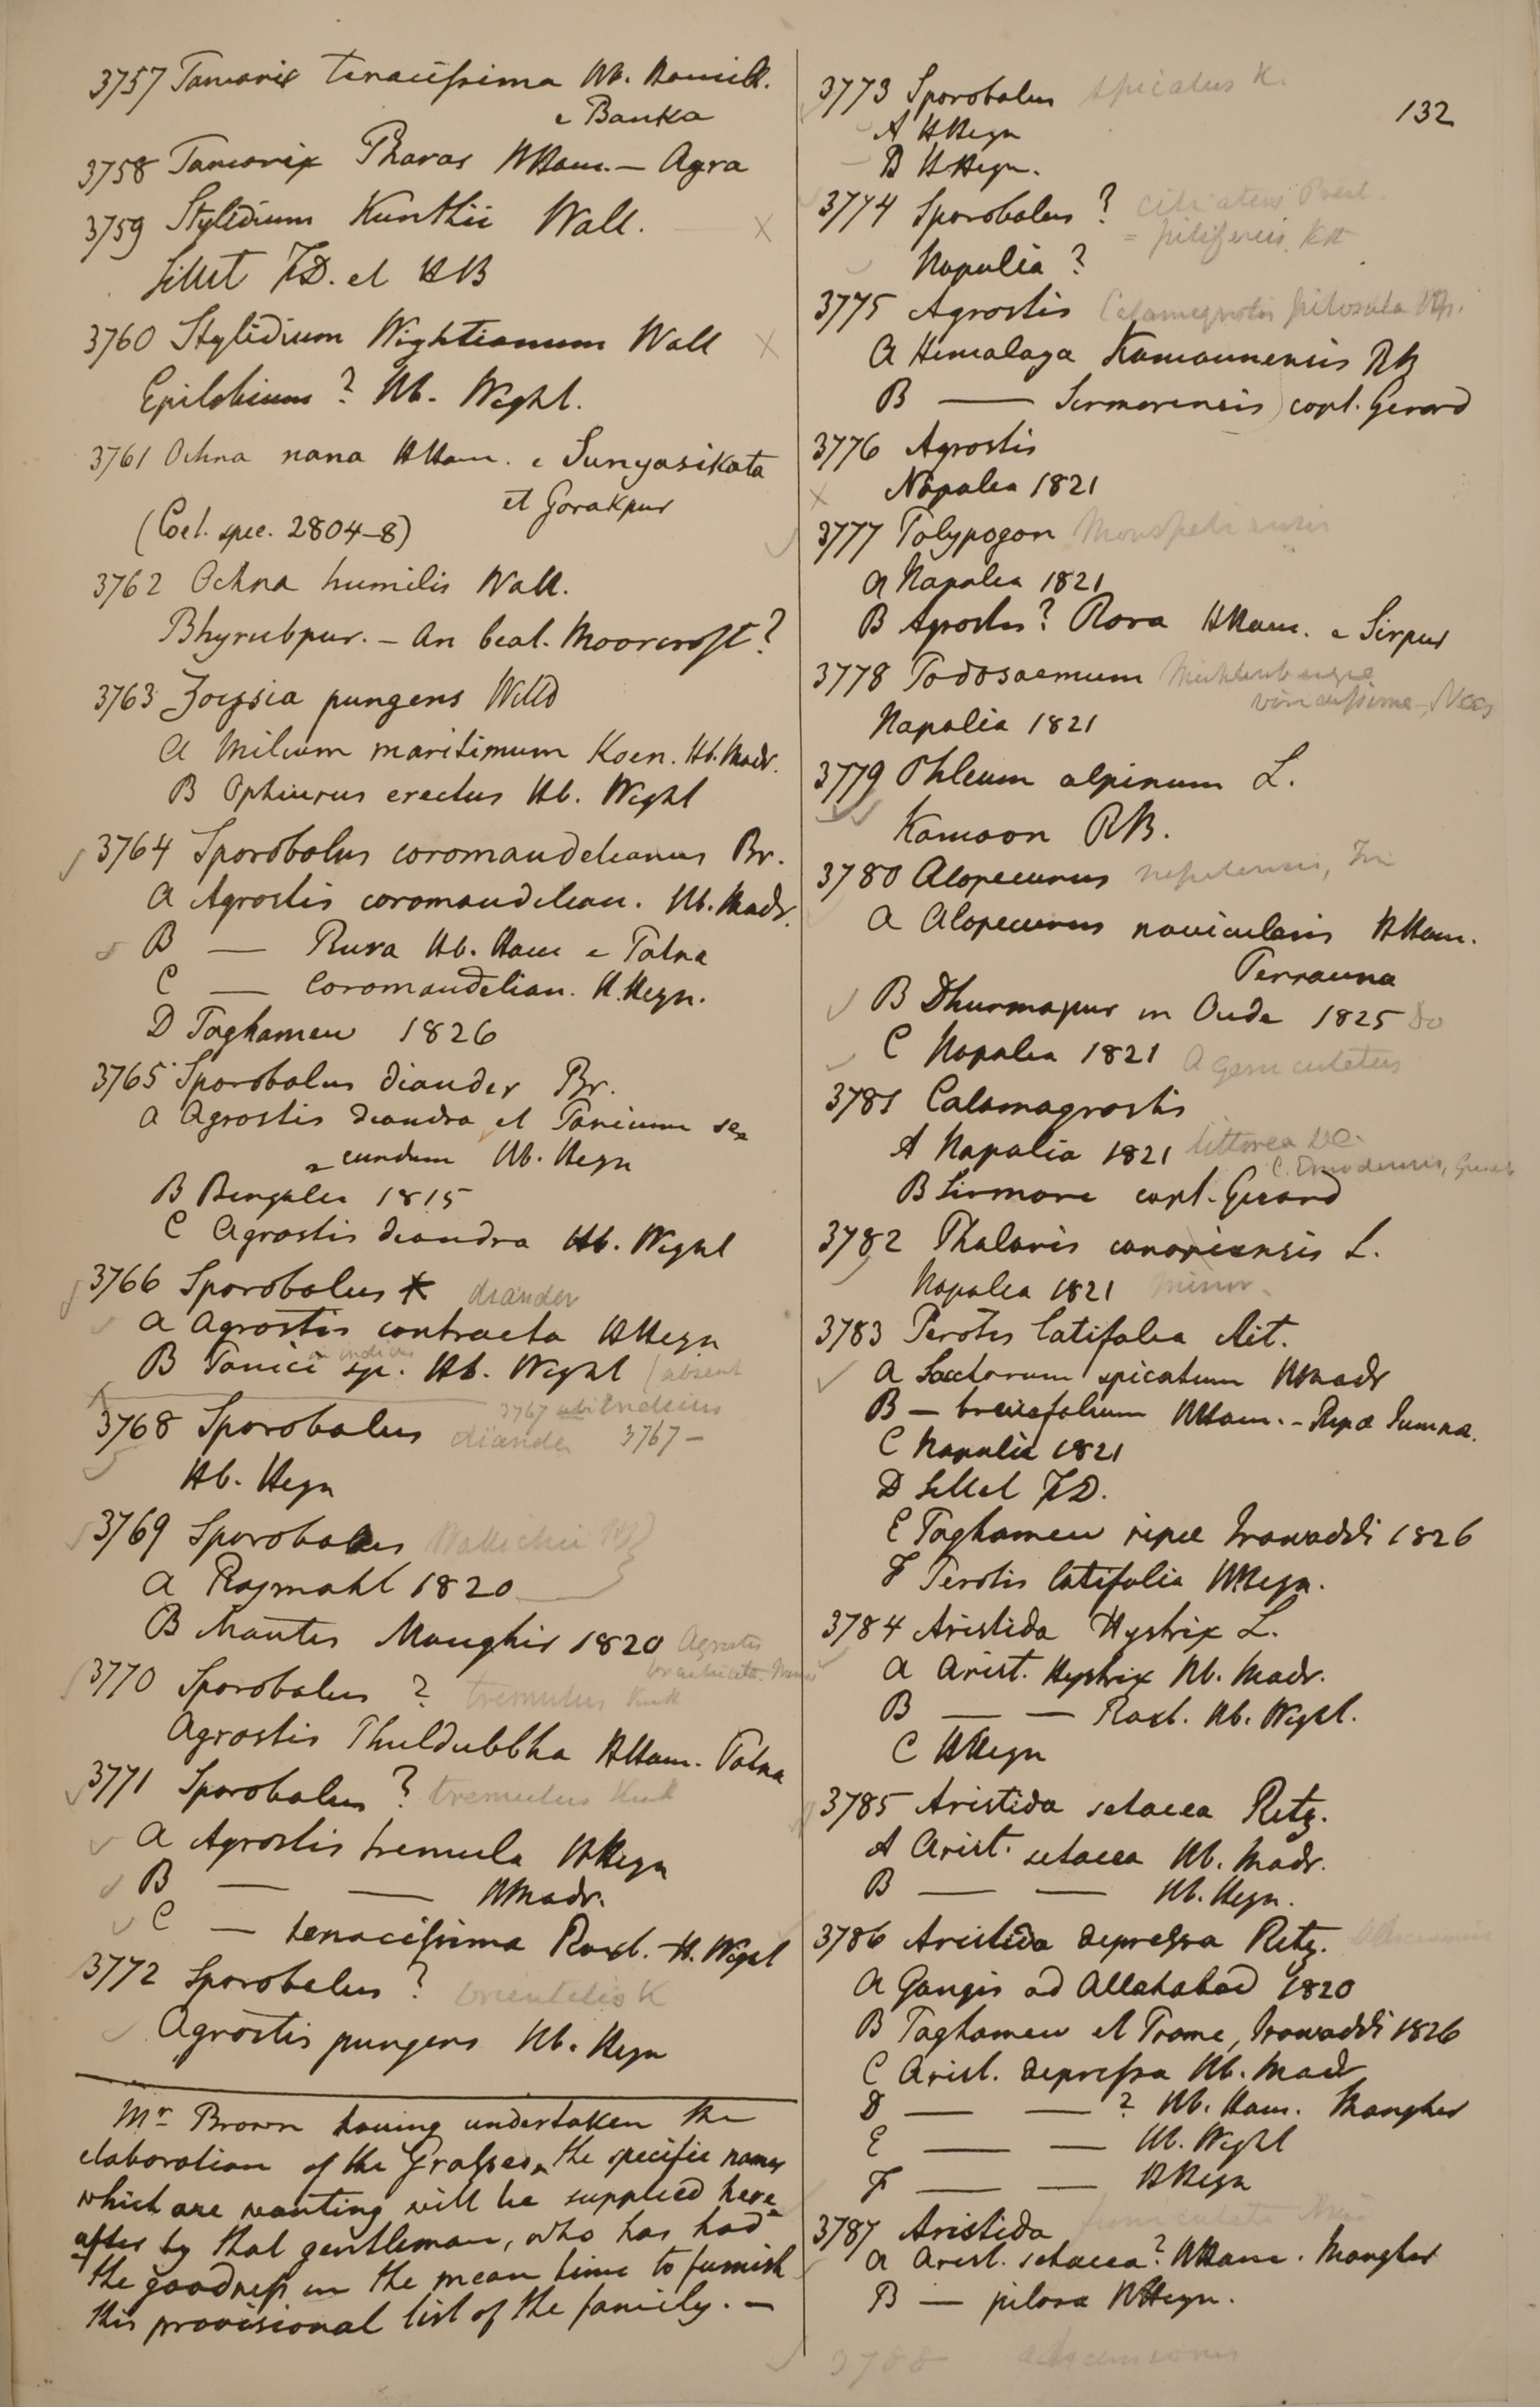 3757 Tamarix tenacissima Hb. Hamilt.
e Banka
3758 Tamarix Pharas HHam. — Agra
3759 Stylidium Kunthii Wall. — X
Sillet FD. et HB
3760 Stylidium Wightianum Wall X
Epilobium? Hb. Wight.
3761 Ochna nana HHam. e Sunyasikata
et Gorakpur
(Coel. spec. 2804–8)
3762 Ochna humilis Wall.
Bhyrubpur. — An beat. Moorcroft?
3763 Zoyssia pungens Willd
a Milium maritimum Koen. Hb. Madr.
B Ophiurus erectus Hb. Wight
3764 Sporobolus coromandelianus Br.
a Agrostis coromandelian. Hb. Madr.
B — Rura Hb. Ham e Patna
C — Coromandelian. H. Heyn.
D Taghamew 1826
3765 Sporobolus diander Br.
a Agrostis diandra et Panicum se=
=cundum Hb. Heyn
B Bengalia 1815
C Agrostis diandra Hb. Wight
3766 Sporobolus diander
a Agrostis contracta HHeyn
indicus
B Panici sp. Hb. Wight (absent
3767 indicus
3768 Sporobolus diander 3767 –
Hb. Heyn
3769 Sporobolus Wallichii
a Rajmahl 1820
B Montes Monghir 1820 Agrostis
3770 Sporobolus? tremulus Knth
Agrostis Thuldubbha HHam. Patna
3771 Sporobolus? tremulus Knth
a Agrostis tremula HHeyn
B — — HMadr.
C — tenacissima Roxb. H. Wight
3772 Sporobolus? orientalis K
Agrostis pungens Hb. Heyn
Mr Brown having undertaken the
elaboration of the Grasses, the specific names
which are wanting will be supplied here=
=after by that gentleman, who has had
the goodness in the mean time to furnish
this provisional list of the family. —
132
3773 Sporobolus spicatus K.
A HHeyn
B HHeyn.
3774 Sporobolus? ciliatus Presl.
= piliferus, Kth
Napalia?
3775 Agrostis Calamagrostis pilosula
a Himalaya Kamaunensis RB
B — Sirmorensis) capt. Gerard
3776 Agrostis
X Napalia 1821
3777 Polypogon Monspeliensis
a Napalia 1821
B Agrostis? Rora HHam. e Sirpur
3778 Podosaemum Muhlenbergia
viridissima, Nees
Napalia 1821
3779 Phleum alpinum L.
Kamaon RB.
3780 Alopecurus nepalensis, Tri
a Alopecurus navicularis HHam.
Terrauna
B Dhurmapur in Oude 1825 do
C Napalia 1821 A geniculatus
3781 Calamagrostis
A Napalia 1821 littorea DC.
C. Emodensis, Griseb
B Sirmore capt. Gerard
3782 Phalaris canariensis L.
Napalia 1821 minor.
3783 Perotis latifolia Ait.
a Saccharum spicatum HMadr
B — brevifolium HHam. – Ripa Jumna.
C Napalia 1821
D Sillet FD.
E Taghamew ripae Irawaddi 1826
F Perotis latifolia HHeyn.
3784 Aristida Hystrix L.
a Arist. Hystrix Hb. Madr.
B — — Roxb. Hb. Wight.
C HHeyn
3785 Aristida setacea Retz.
A Arist. setacea Hb. Madr.
B — — Hb. Heyn.
3786 Aristida depressa Retz.
a Gangis ad Allahabad 1820
B Taghamew et Prome, Irawaddi 1826
C Arist. depressa Hb. Madr
D — — ? Hb. Ham. Monghir
E — — Hb. Wight
F — — HHeyn
3787 Aristida funiculata
a Arist. setacea? HHam. Monghir
B — pilosa HHeyn.
3788 adscensionis